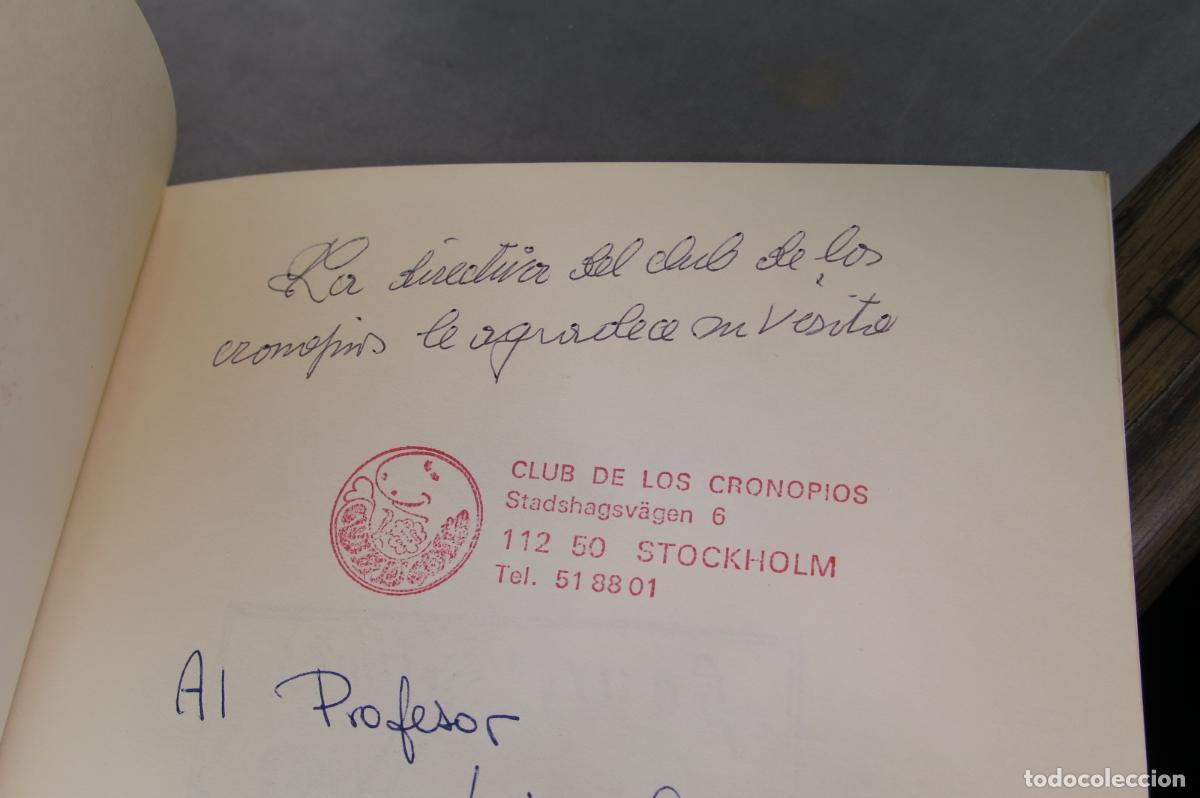 La directiva del club de los
cronopios le agradece su visita
CLUB DE LOS CRONOPIOS
Stadshagsvägen 6
112 50 STOCKHOLM
Tel. 51 88 01
Al Profesor
todocoleccion